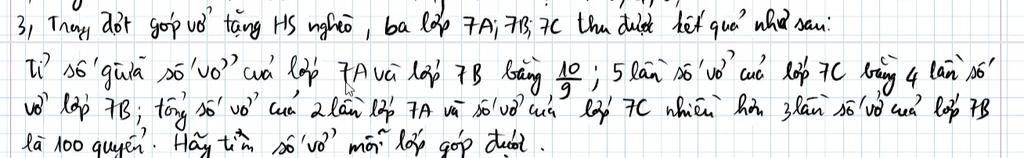 3, Trong đợt góp vở tặng HS nghèo, ba lớp 7A; 7B; 7C thu được kết quả như sau:
Tỉ số giữa số vở của lớp 7A và lớp 7B bằng 10/9; 5 lần số vở của lớp 7C bằng 4 lần số
vở lớp 7B; tổng số vở của 2 lần lớp 7A và số vở của lớp 7C nhiều hơn 3 lần số vở của lớp 7B
là 100 quyển. Hãy tìm số vở mỗi lớp góp được.